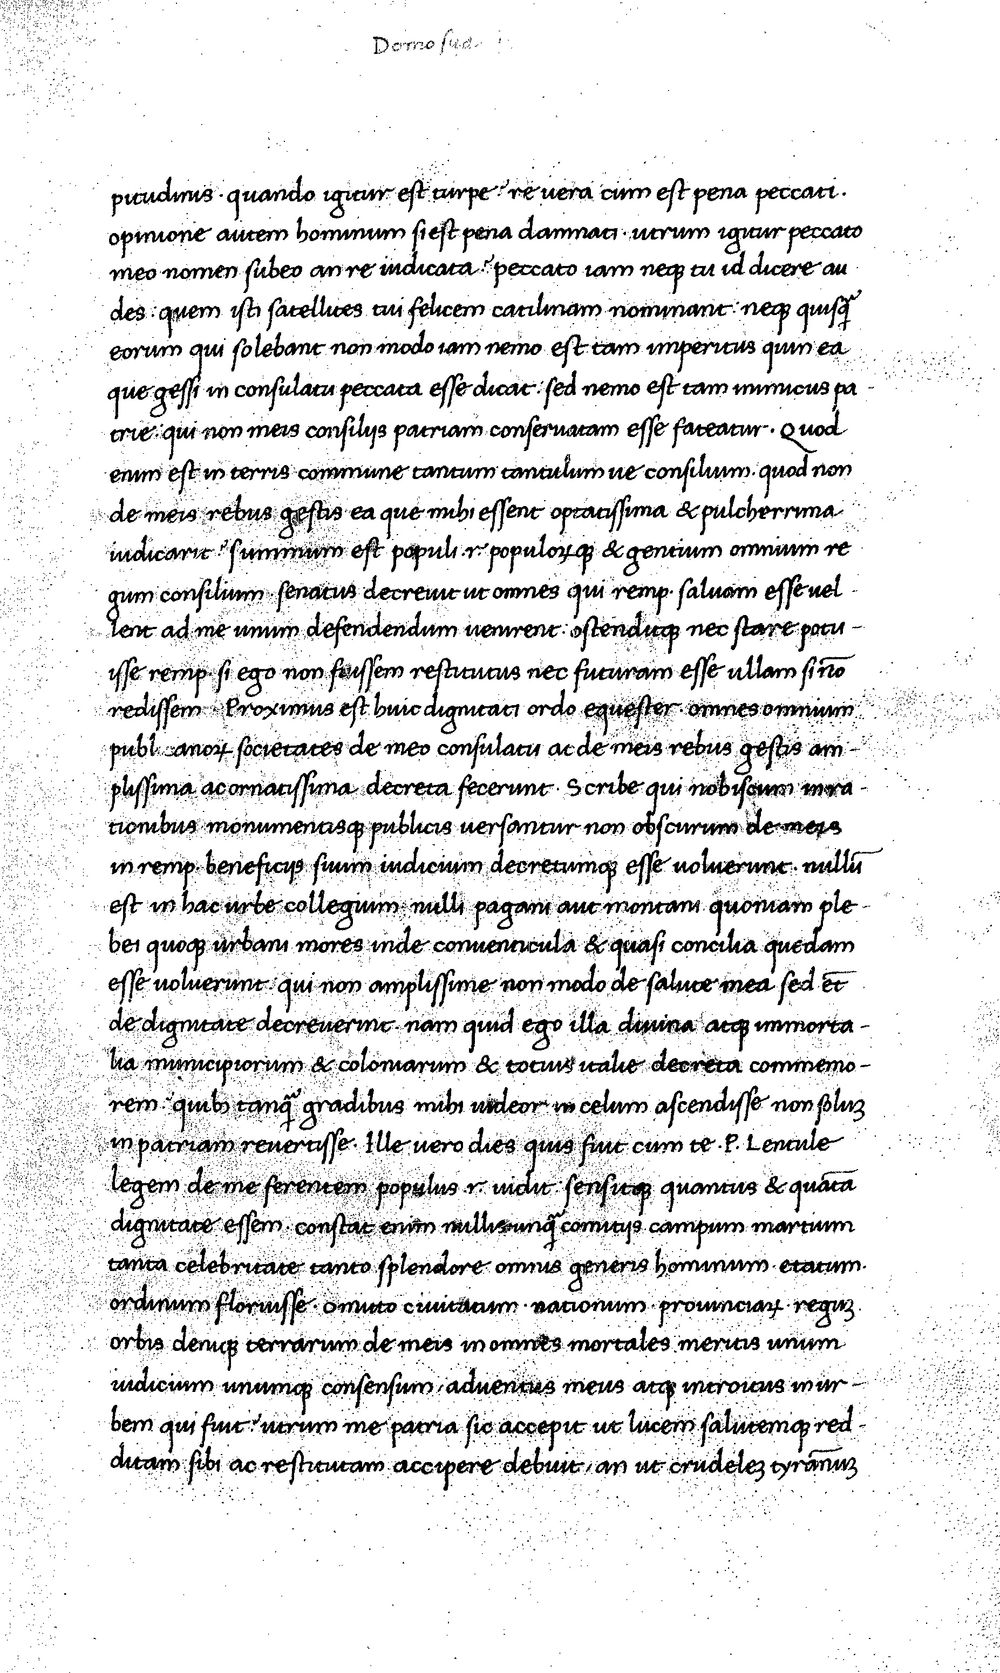 Domo sua
pitudinis · quando igitur est turpe ? re vera cum est pena peccati ·
opinione autem hominum si est pena damnati · utrum igitur peccato
meo nomen subeo an re iudicata ? peccato iam neqꝫ tu id dicere au
des : quem isti satellites tui felicem catilinam nominant : neqꝫ quisq̃
eorum qui solebant non modo iam nemo est tam imperitus quin ea
que gessi in consulatu peccata esse dicat : sed nemo est tam inimicus pa -
trie : qui non meis consilijs patriam conservatam esse fateatur · Quod
enim est in terris commune tantum tantulum ve consilium · quod non
de meis rebus gestis ea que mihi essent optatissima & pulcherrima
iudicarit ? summum est populi · r · populoꝝqꝫ & gentium omnium re
gum consilium · senatus decrevit ut omnes qui remp · salvam esse vel -
lent ad me unum defendendum venirent · ostenditqꝫ nec stare potu -
isse remp · si ego non fuissem restitutus nec futuram esse ullam si nō
redissem · Proximus est huic dignitati ordo equester · omnes omnium
publ anoꝝ societates de meo consulatu ac de meis rebus gestis am -
plissima ac ornatissima decreta fecerunt · Scribe qui nobiscum in ra -
tionibus monumentisqꝫ publicis versantur non obscurum de meis
in remp · beneficijs suum iudicium decretumqꝫ esse voluerunt · nullū
est in hac urbe collegium · nulli pagani aut montani quoniam ple -
bei quoqꝫ urbani mores inde conventicula & quasi concilia quedam
esse voluerunt · qui non amplissime non modo de salute mea sed et̄
de dignitate decreverint · nam quid ego illa divina atqꝫ immorta -
lia municipiorum & coloniarum & totius italie decreta commemo -
rem · quibꝫ tanq̃ gradibus mihi videor in celum ascendisse non soluꝫ
in patriam revertisse · Ille vero dies quis fuit cum te · P · Lentule
legem de me ferentem populus · r · vidit · sensitqꝫ quantus & quātā
dignitate essem · constat enim nullis unq̃ comitijs campum martium
tanta celebritate tanto splendore omnis generis hominum · etatum ·
ordinum floruisse · omitto civitatum · nationum · provinciaꝝ · reguꝫ ·
orbis deniqꝫ terrarum de meis in omnes mortales meritis unum
iudicium unumqꝫ consensum / adventus meus atqꝫ introitus in ur -
bem qui fuit ? utrum me patria sic accepit ut lucem salutemqꝫ red -
ditam sibi ac restitutam accipere debuit / an ut crudeleꝫ tyrānuꝫ